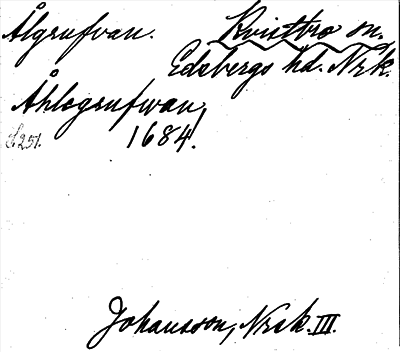 Ålgrufvan. Kvistbro sn.
Edsbergs hd. Nrk.
Åhlegrufwan,
1684!
S. 251.
Johansson, Norak. III.